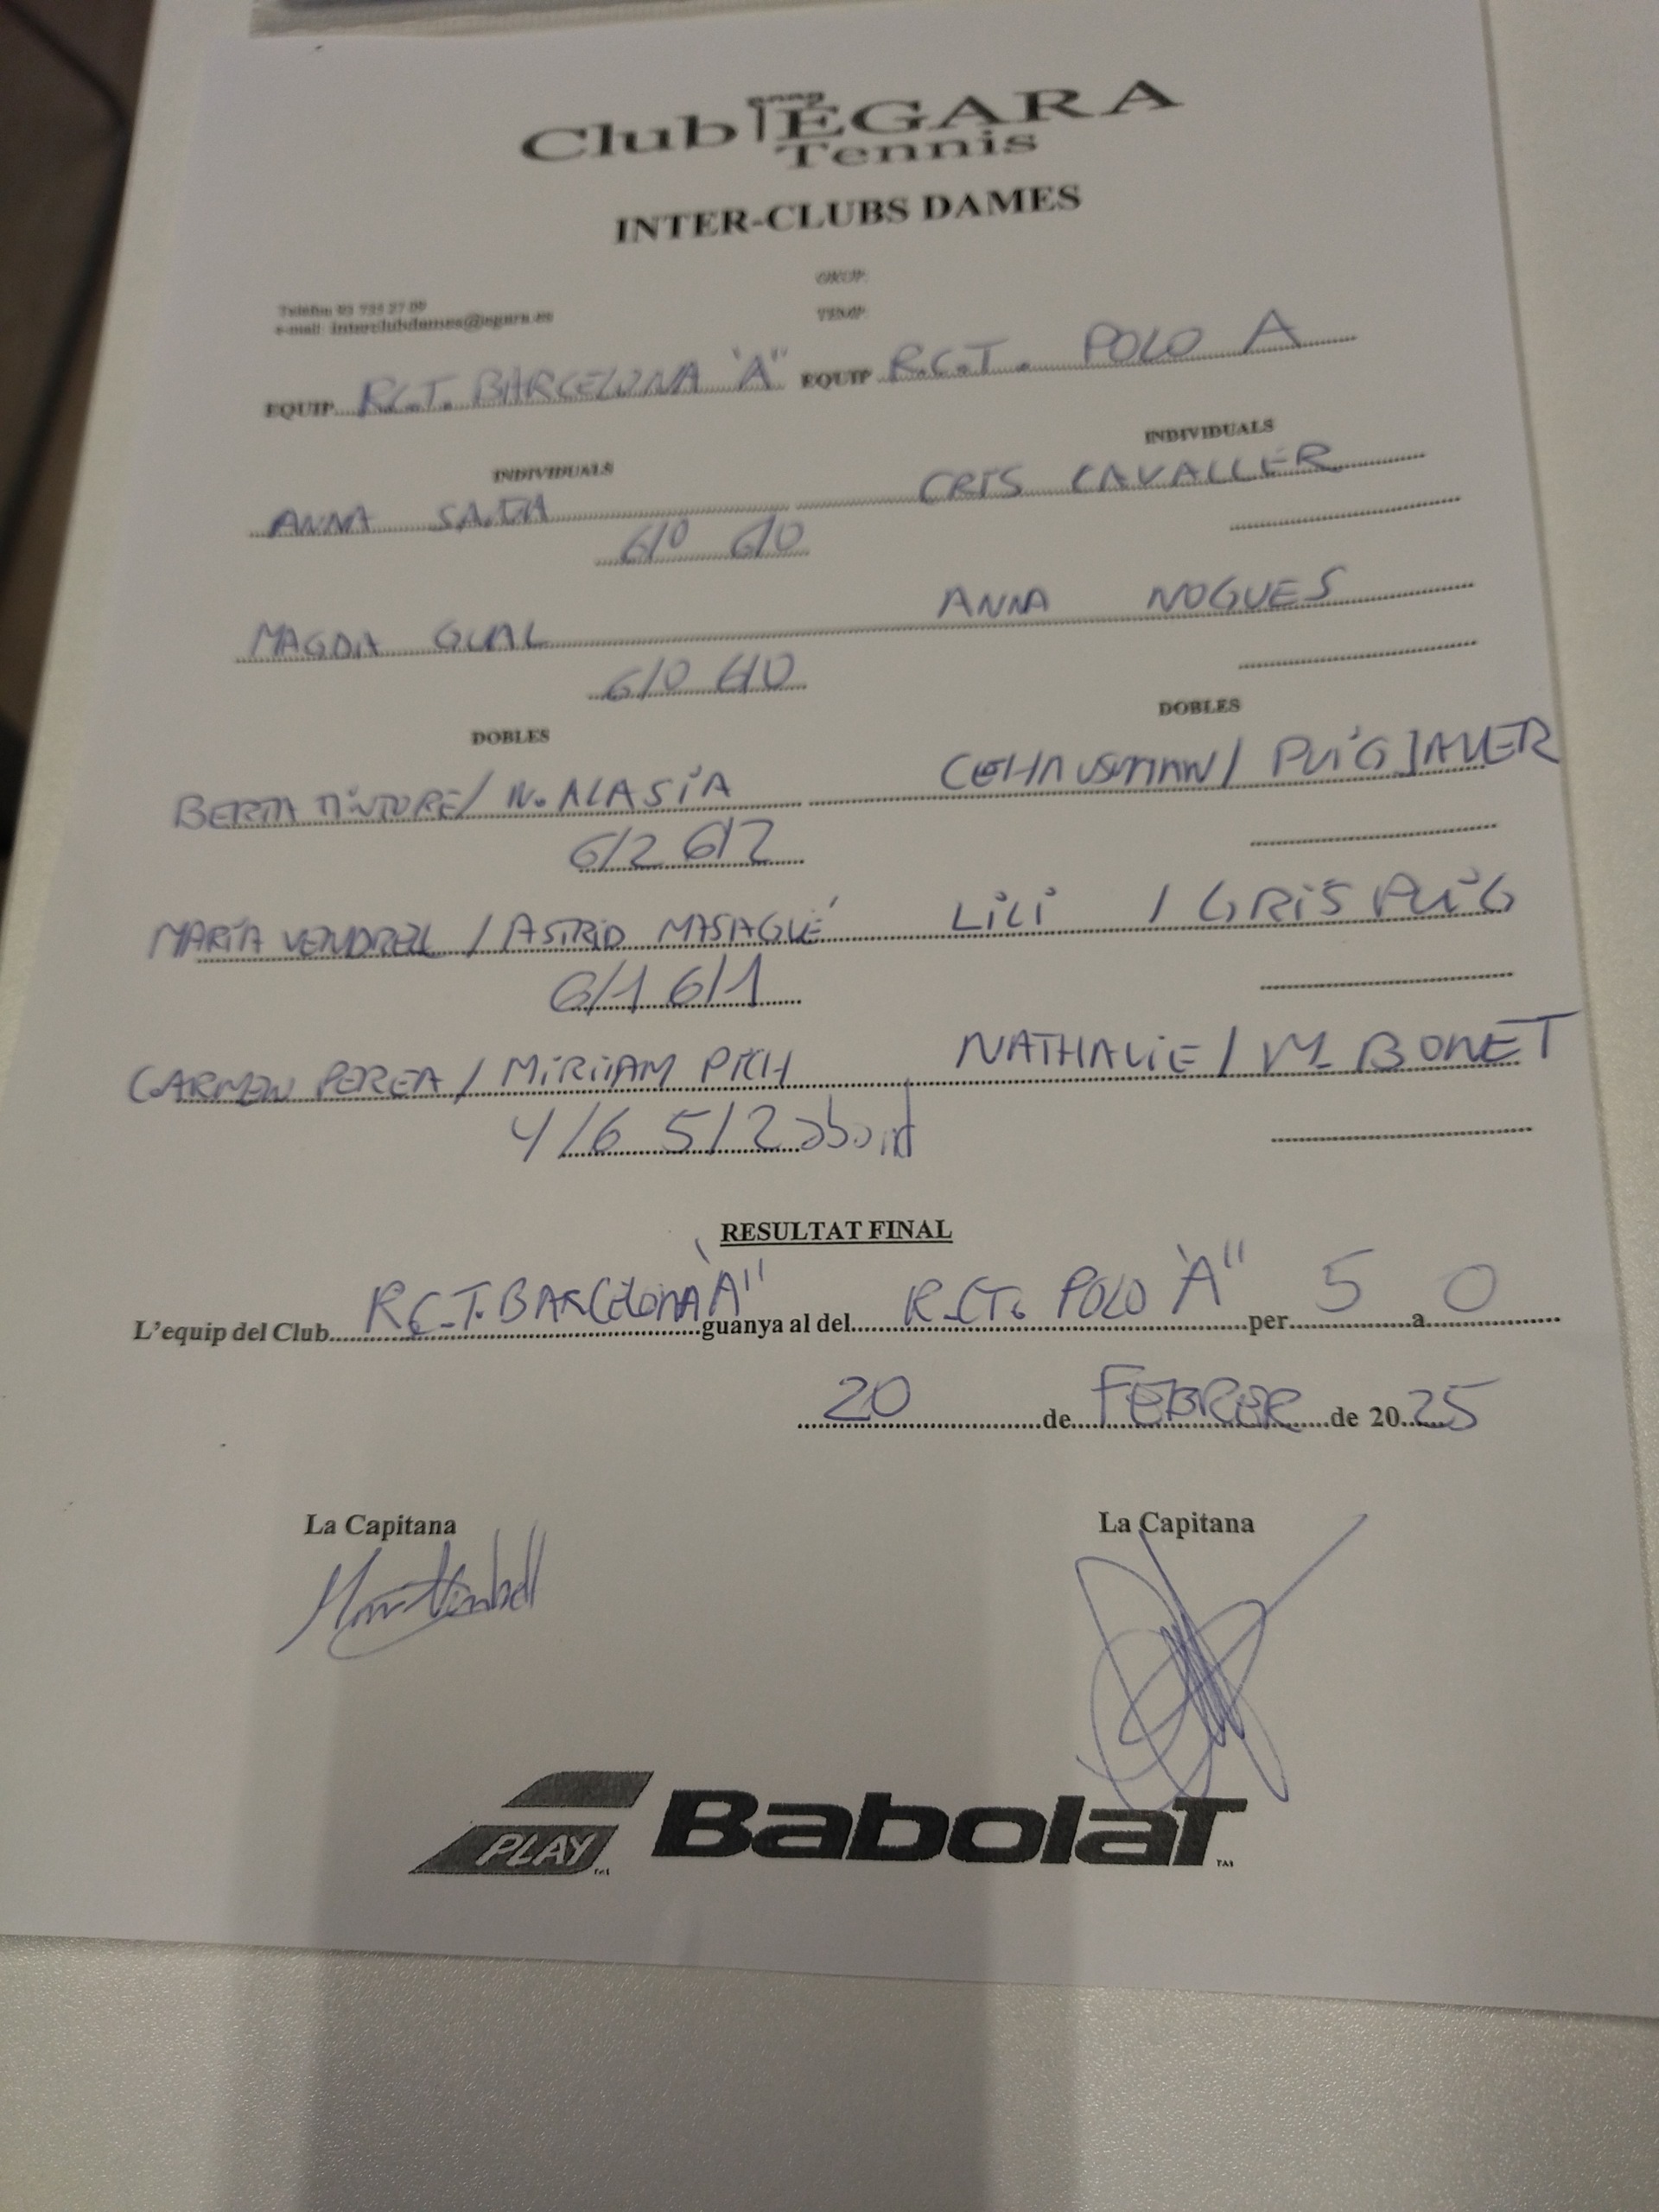 Club ÉGARA
Tennis
INTER-CLUBS DAMES
GRUP:
TEMP:
Telèfon 93 735 27 00
e-mail: interclubdames@egara.es
EQUIP R.C.T. BARCELONA "A" EQUIP R.C.T. POLO A
INDIVIDUALS INDIVIDUALS
ANNA CRIS CAVALLER
6/0 6/0
MAGDA GUAL ANNA NOGUES
6/0 6/0
DOBLES DOBLES
BERTA TINTORE / N. ALASIA / PUIGJANER
6/2 6/2
MARIA VENDRELL / ASTRID MASAGUÉ LILI / CRIS PUIG
6/1 6/1
CARMEN PEREA / MIRIAM PICH NATHALIE / M. BONET
4/6 5/2 aband
RESULTAT FINAL
L'equip del Club R.C.T. BARCELONA "A" guanya al del R.C.T. POLO "A" per 5 a 0
20 de FEBRER de 2025
La Capitana La Capitana
PLAY Babolat